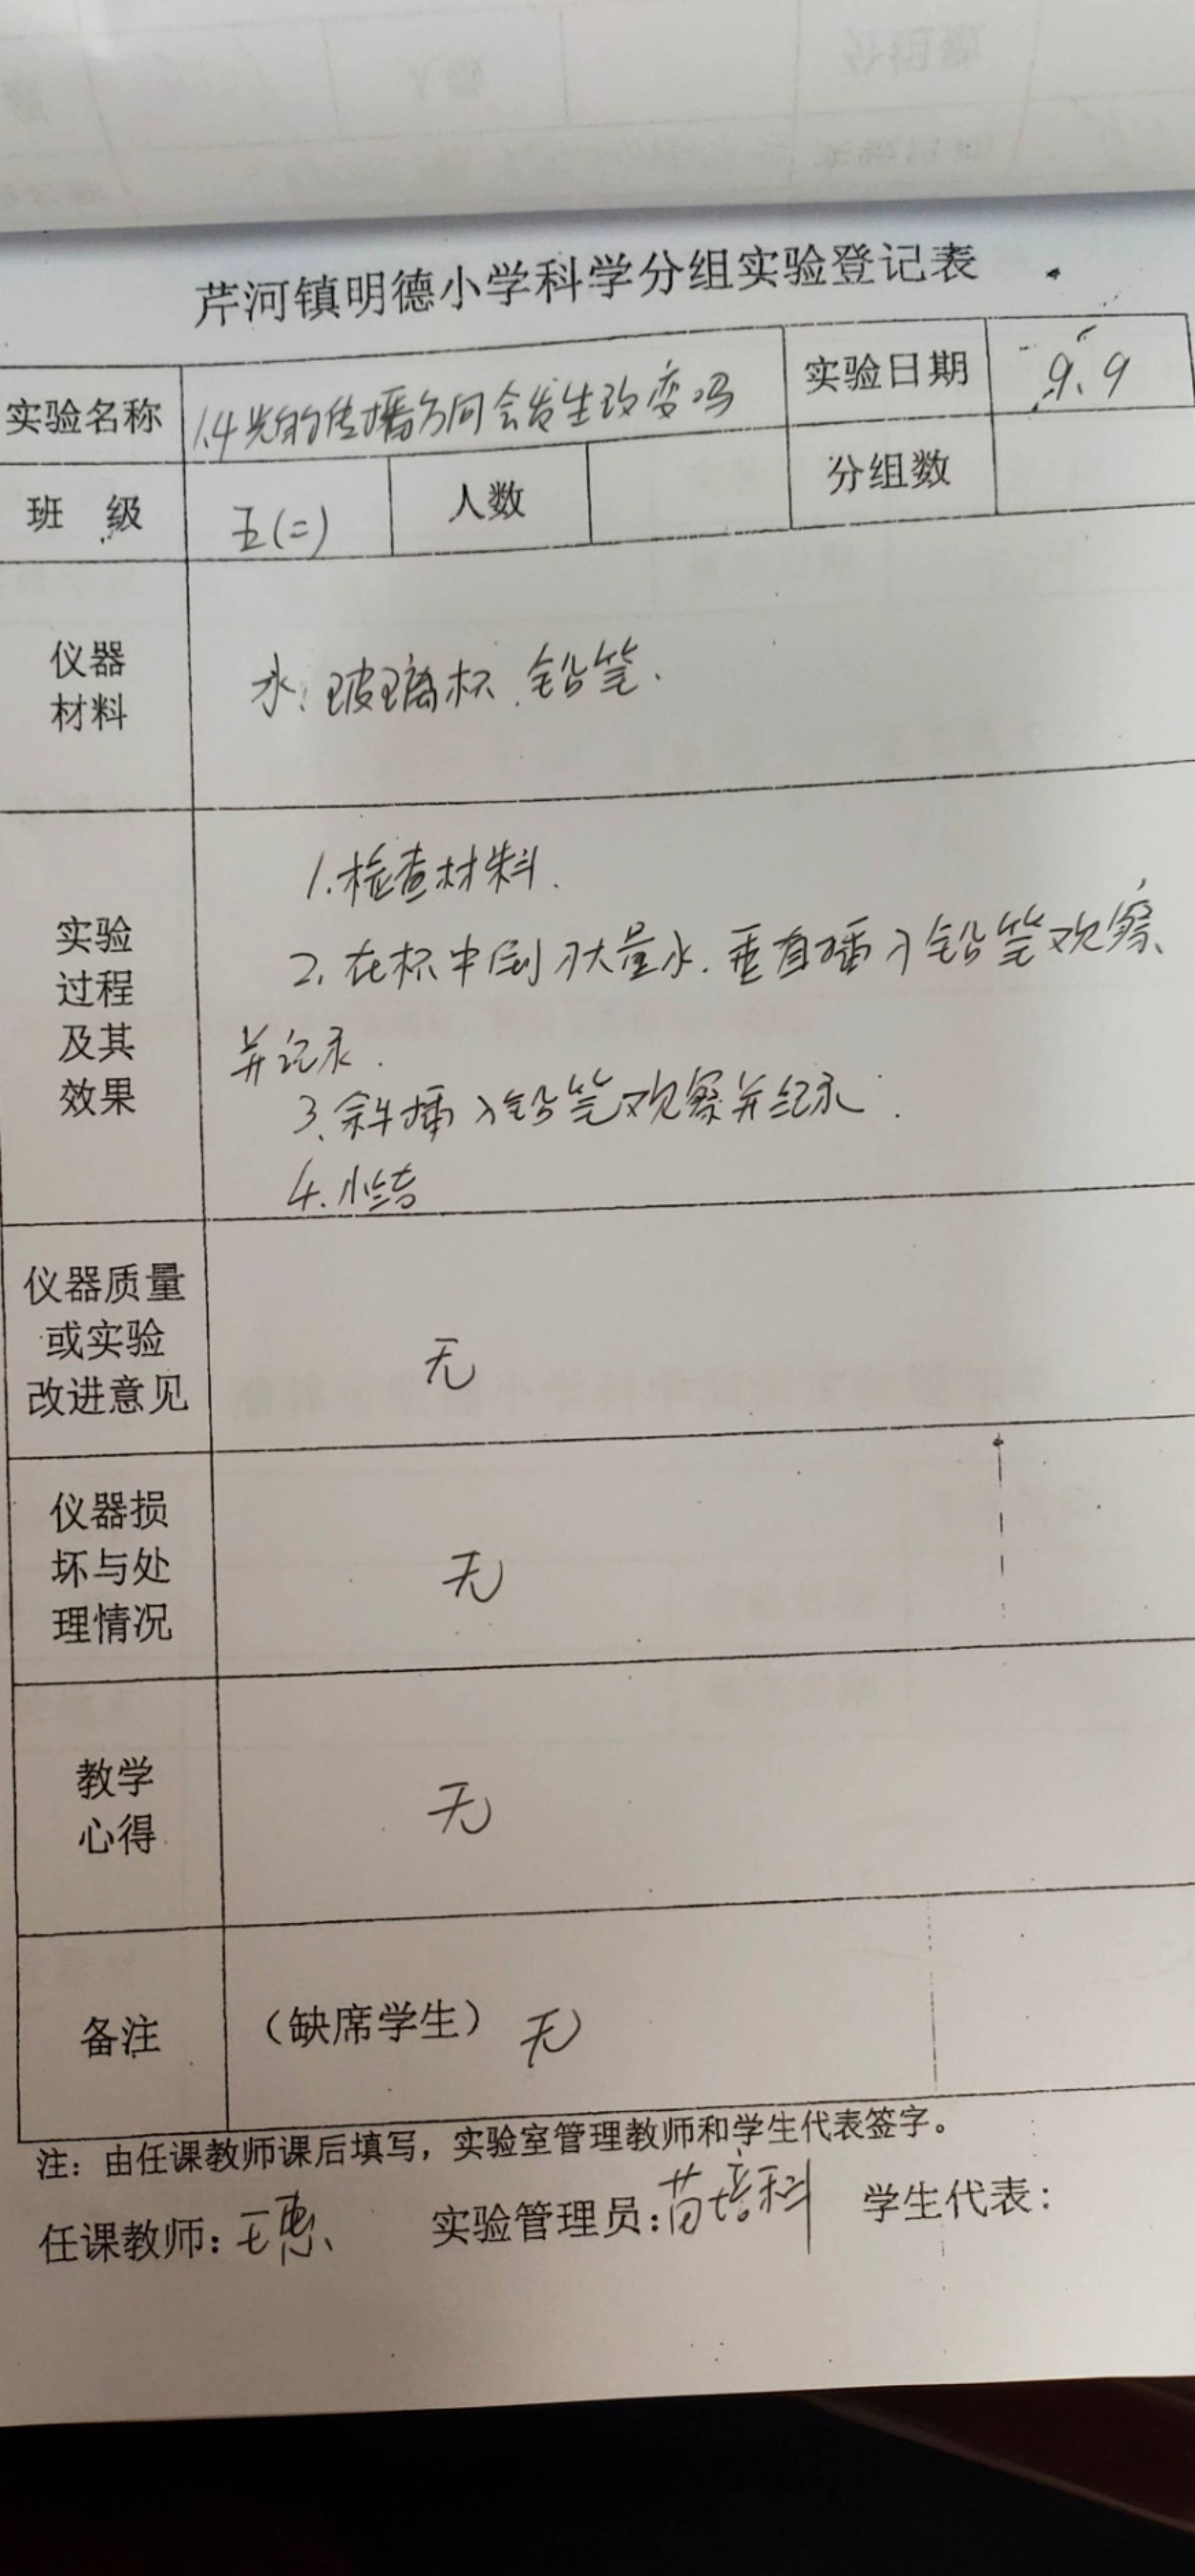 芹河镇明德小学科学分组实验登记表
实验名称 1.4光的传播方向会发生改变吗 实验日期 9.9
班 级 五(二) 人数 分组数
仪器
材料
水. 玻璃杯. 铅笔.
实验
过程
及其
效果
1.检查材料.
2.在杯中倒入大量水.垂直插入铅笔观察、
并记录.
3.斜插入铅笔观察并纪录.
4.小结
仪器质量
或实验
改进意见
无
仪器损
坏与处
理情况
无
教学
心得
无
备注 (缺席学生) 无
注：由任课教师课后填写，实验室管理教师和学生代表签字。
任课教师:王惠 实验管理员:苗培科 学生代表: